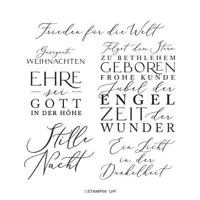 Frieden für die Welt
Gesegnete
WEIHNACHTEN
EHRE
sei
GOTT
IN DER HÖHE
Stille
Nacht
Folget dem Stern
ZU BETHLEHEM
GEBOREN
FROHE KUNDE
Jubel der
ENGEL
ZEIT der
WUNDER
Ein Licht
in der
Dunkelheit
STAMPIN' UP!